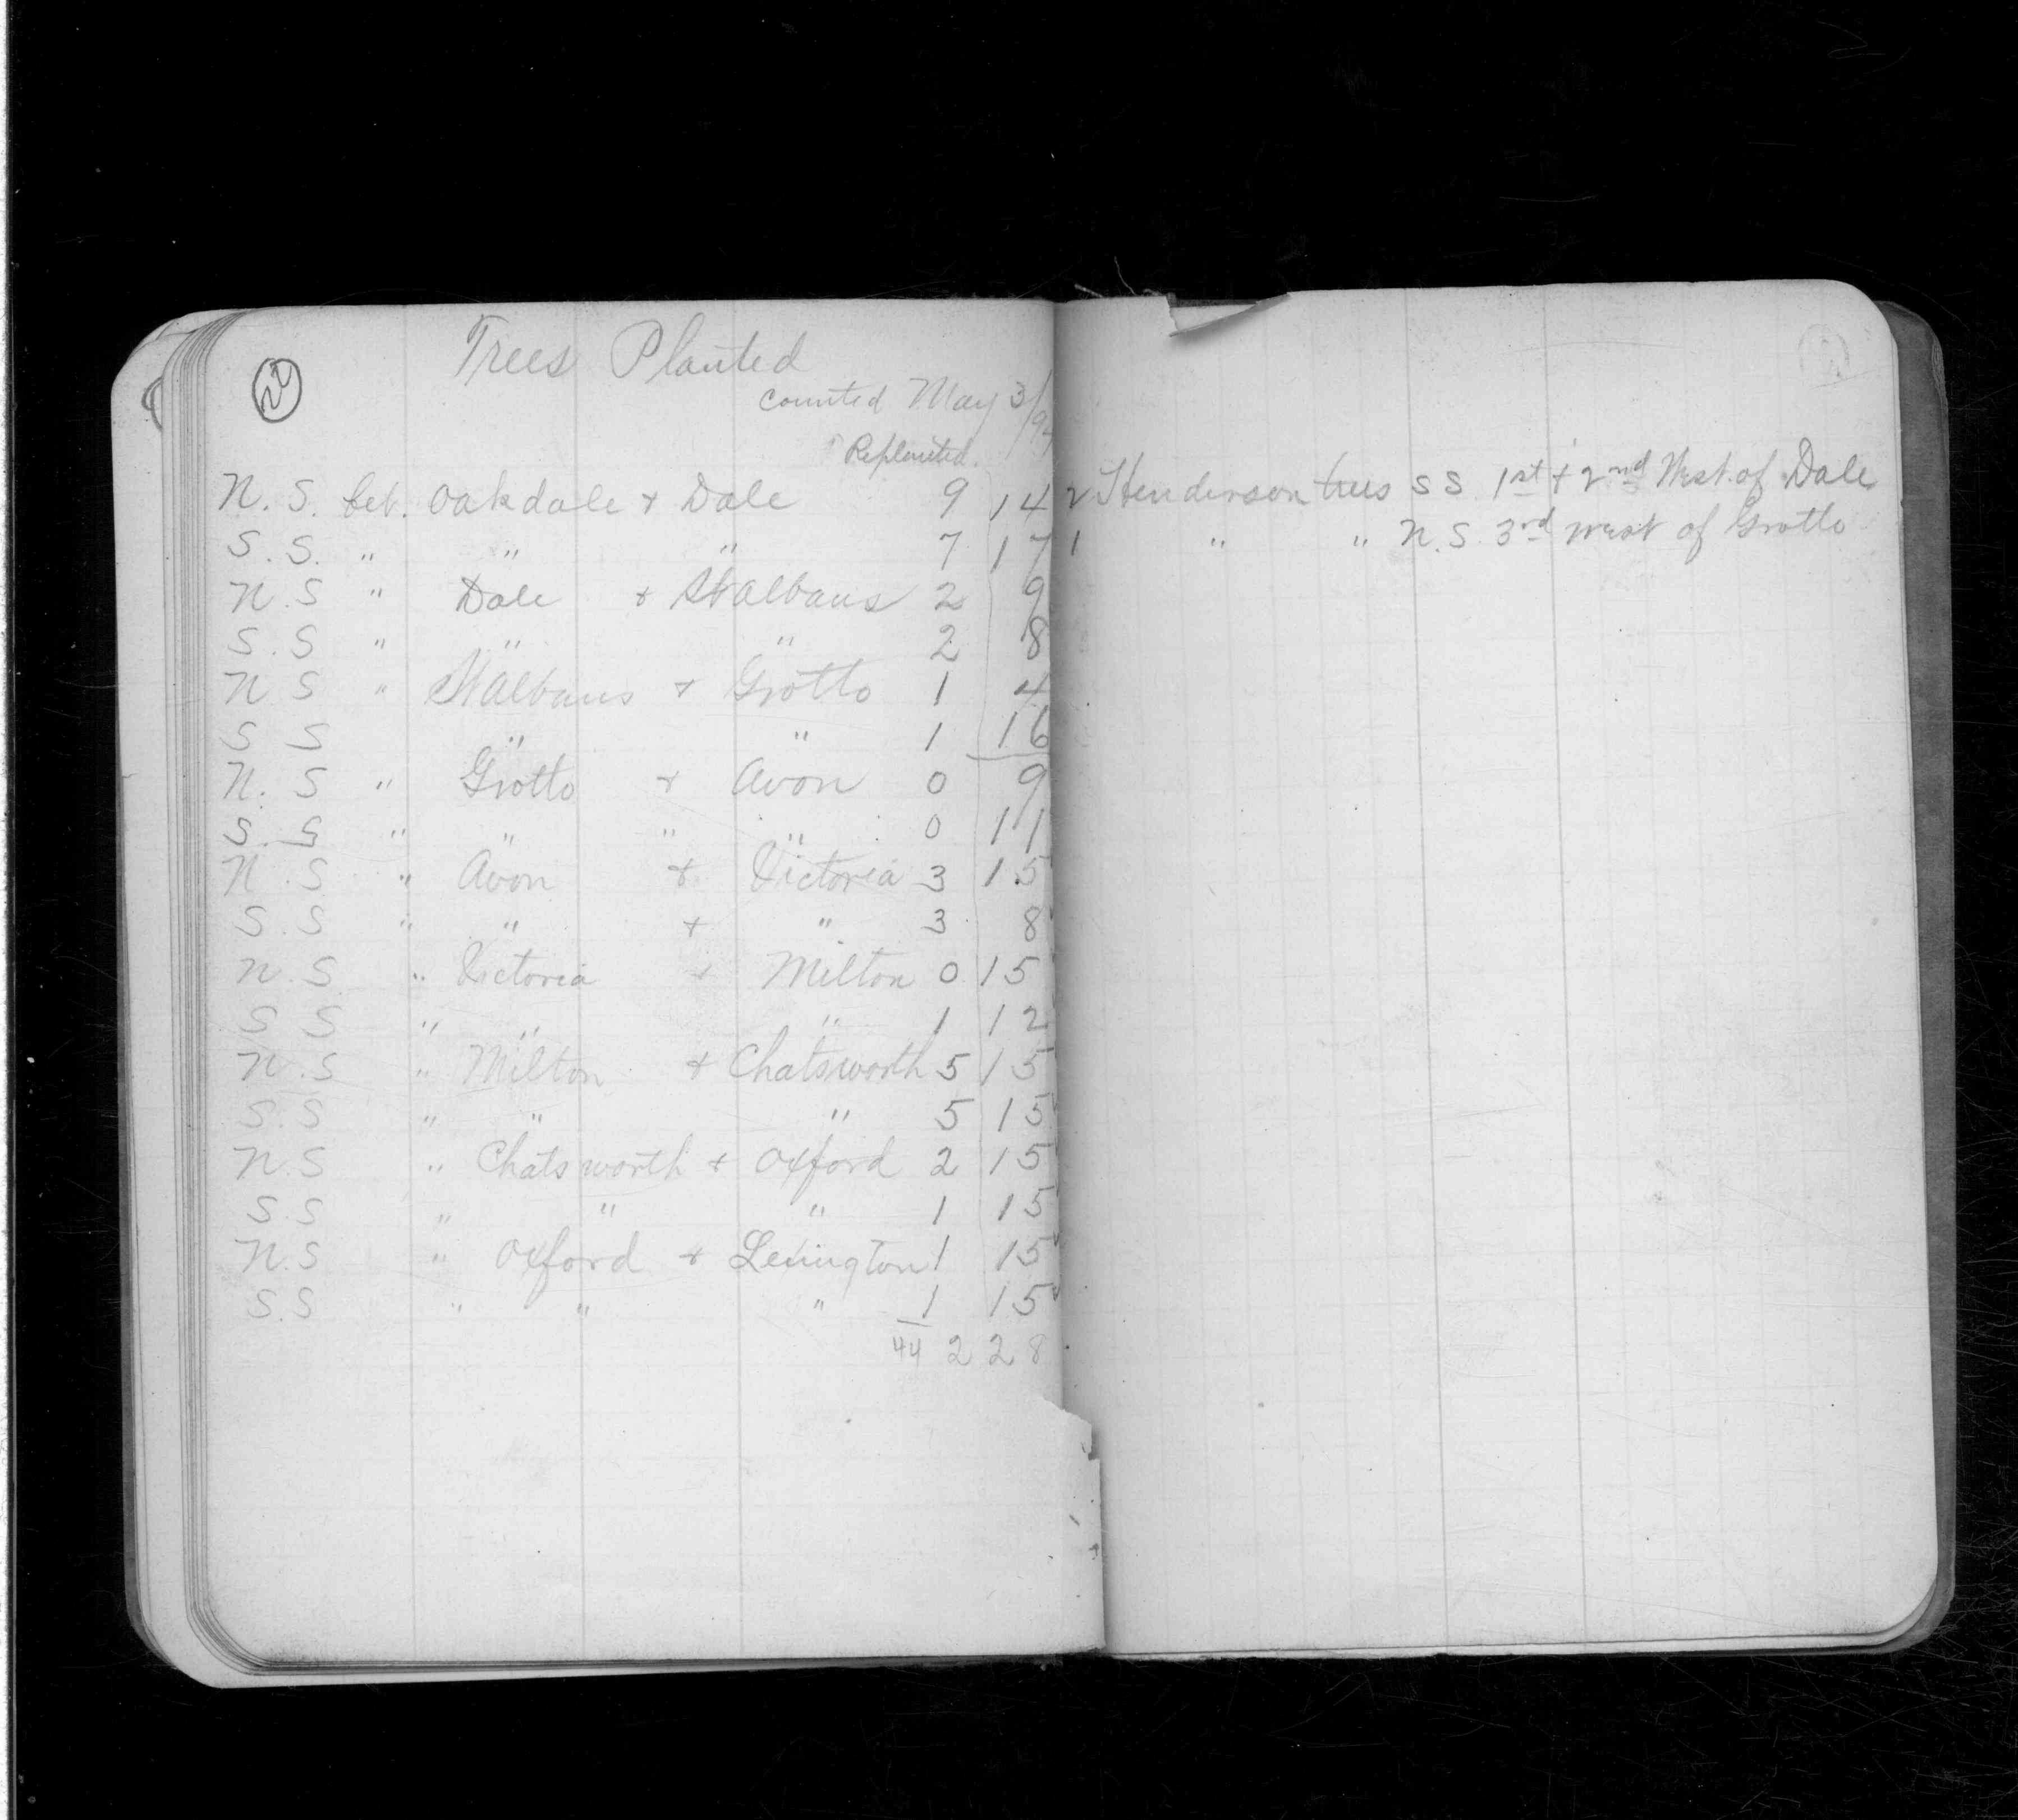 22
Trees Planted
counted May 3/94
Replanted
N. S. bet. Oakdale + Dale 9 14
S. S. " " " 7 17
N. S " Dale + St Albans 2 9
S. S " " " 2 8
N S " St Albans + Grotto 1 4
S S " " 1 16
N. S " Grotto + Avon 0 9
S. S " " " " 0 11
N. S. " Avon + Victoria 3 15
S. S " " + " 3 8
N. S. " Victoria + Milton 0 15
S S " " " 1 12
N. S " Milton + Chatsworth 5 15
S. S " " " 5 15
N. S " Chatsworth + Oxford 2 15
S. S " " " 1 15
N. S " Oxford + Lexington 1 15
S. S " " " 1 15
44 228
2 Henderson trees S S. 1st + 2nd West of Dale
1 " " N. S. 3rd west of Grotto